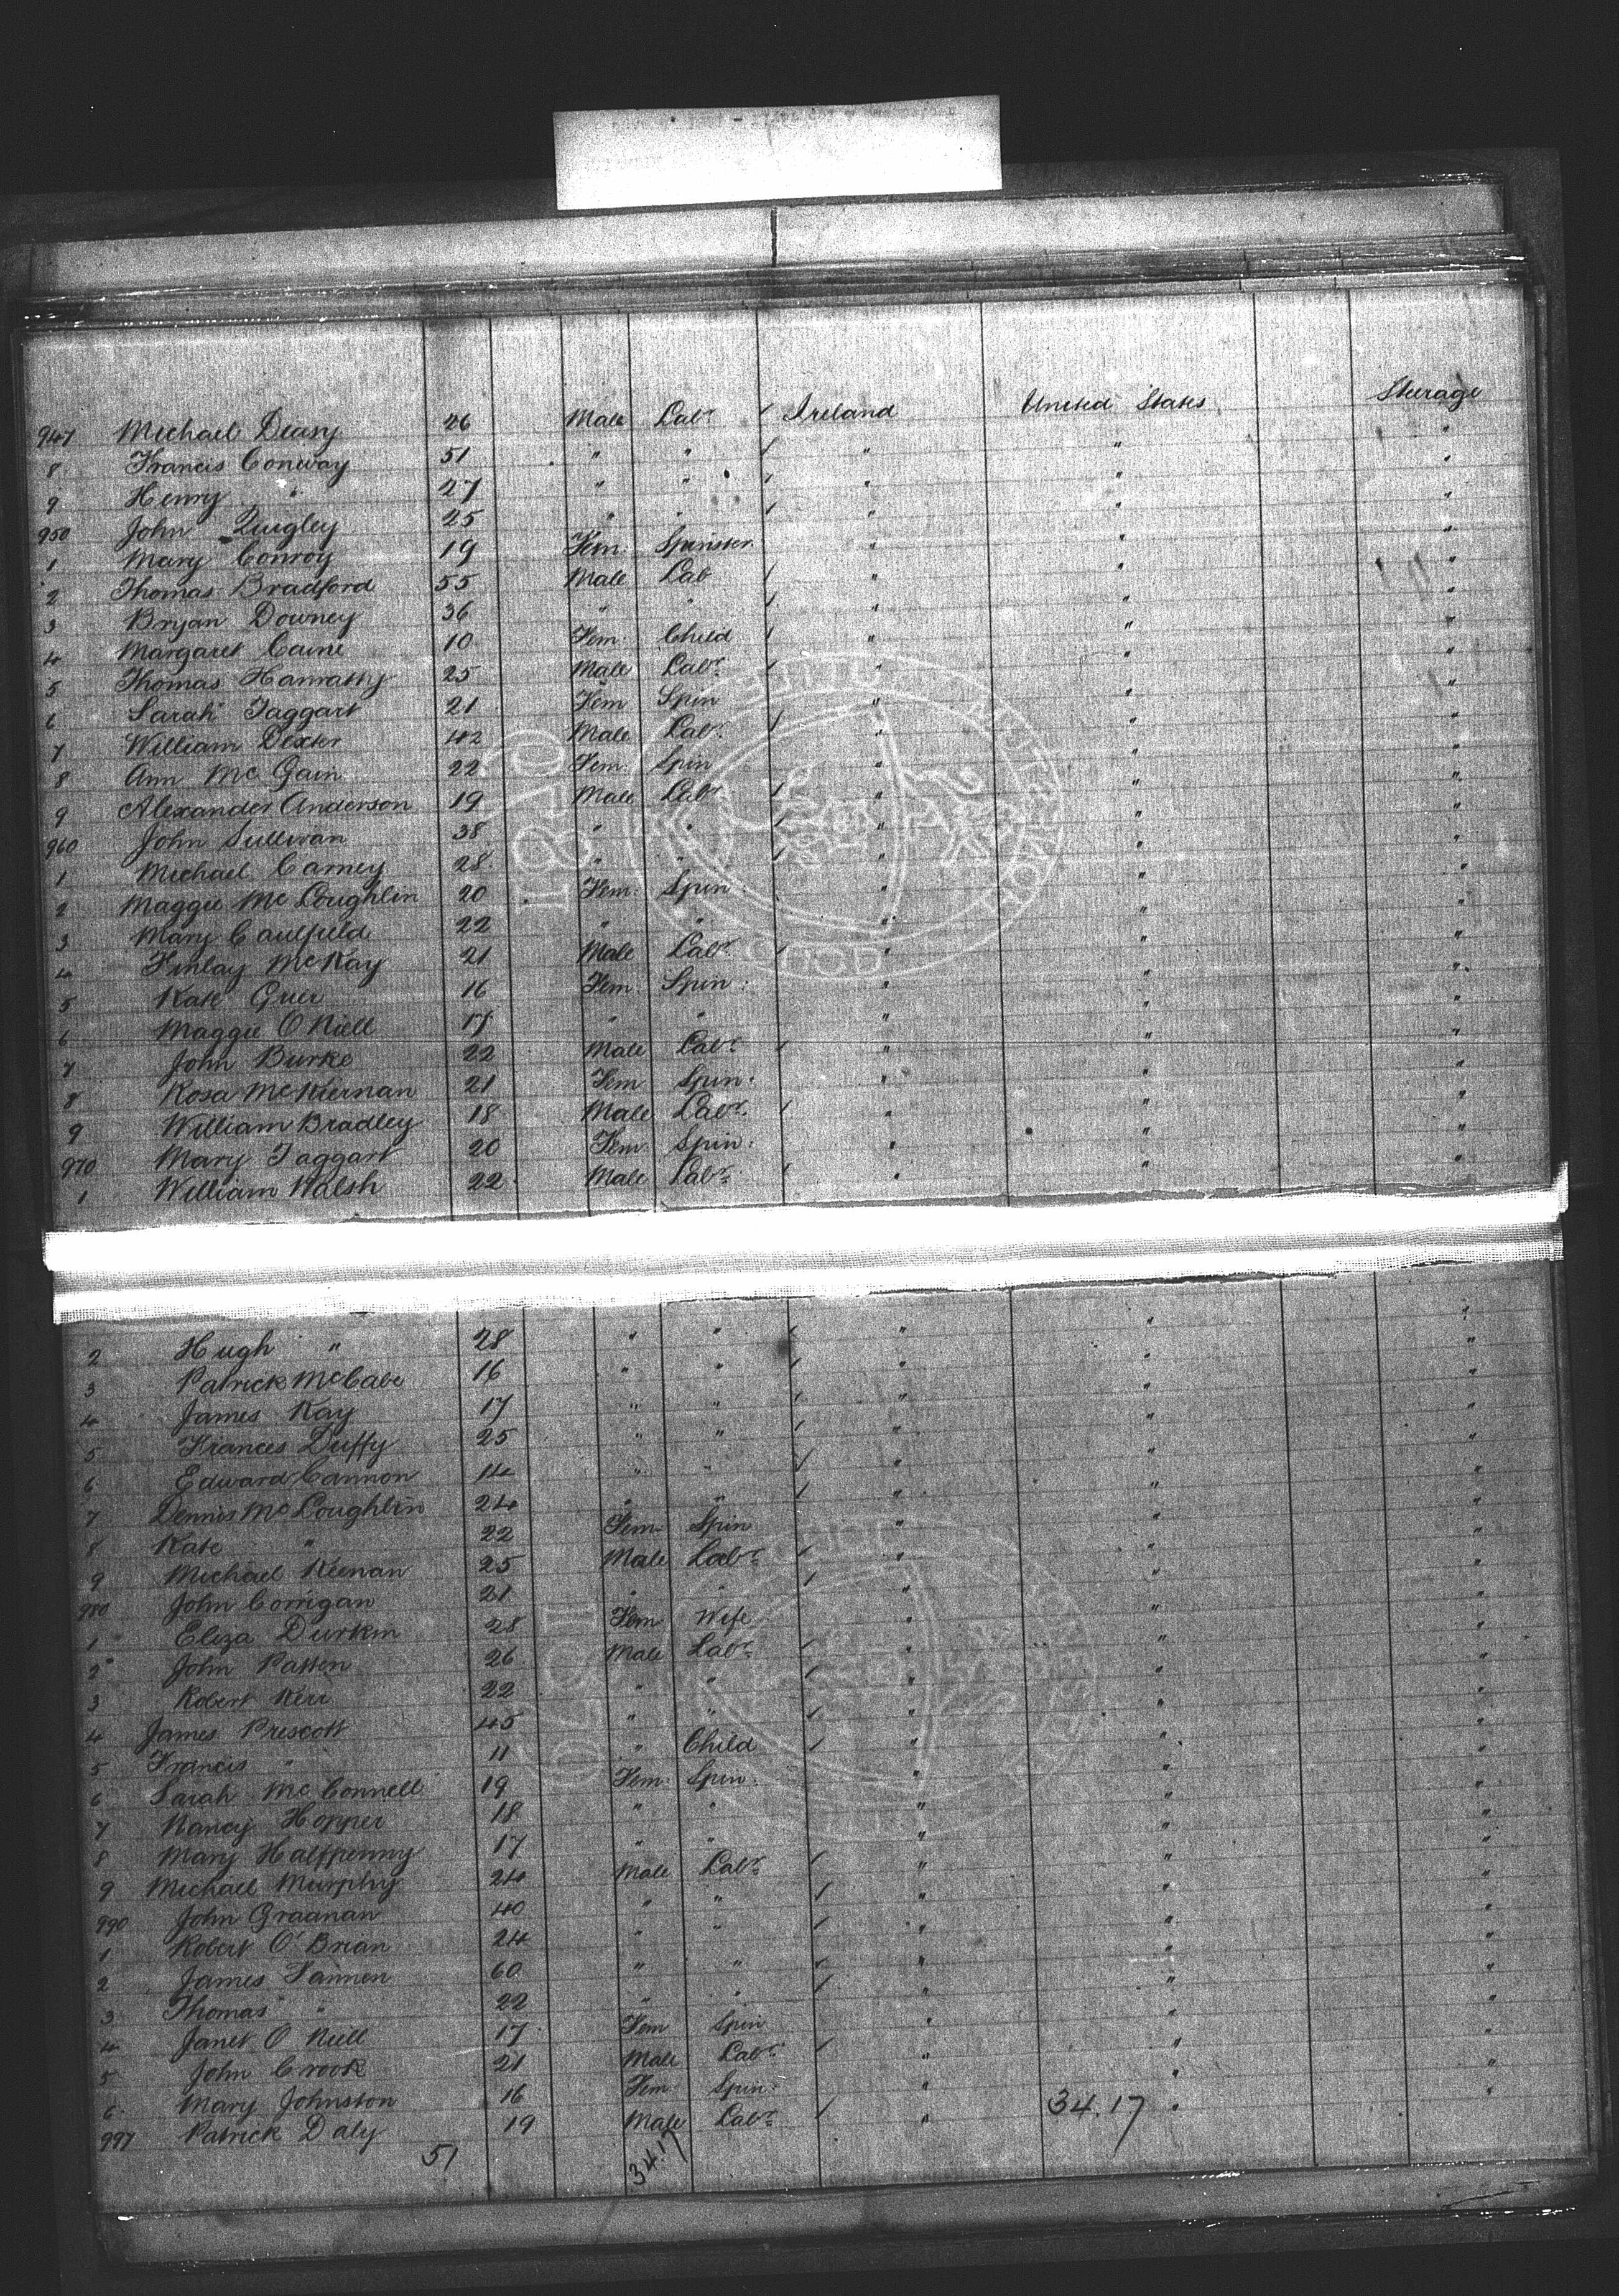 947 Michael Deasy 26 Male Labr / Ireland United States Steerage
8 Francis Conway 51 " " / " " "
9 Henry " 27 " " / " " "
950 John Quigley 25 " " / " " "
1 Mary Conroy 19 Fem. Spinster. " " "
2 Thomas Bradford 55 Male Lab / " " "
3 Bryan Downey 36 " " / " " "
4 Margaret Caine 10 Fem. Child / " " "
5 Thomas Hanratty 25 Male Labr. / " " "
6 Sarah Taggart 21 Fem Spin " " "
7 William Dexter 42 Male Labr. / " " "
8 Ann Mc Gain 22 Fem. Spin " " "
9 Alexander Anderson 19 Male Labr / " " "
960 John Sullivan 38 " " / " " "
1 Michael Carney 28 " " / " " "
2 Maggie Mc Loughlin 20 Fem. Spin " " "
3 Mary Caulfield 22 " " " " "
4 Finlay McKay 21 Male Labr. / " " "
5 Kate Grier 16 Fem. Spin: " " "
6 Maggie O Niell 17 " " " " "
7 John Burke 22 Male Labr. / " " "
8 Rosa McKiernan 21 Fem Spin. " " "
9 William Bradley 18 Male Labr. / " " "
970 Mary Taggart 20 Fem. Spin: " " "
1 William Walsh 22 Male Labr. / " " "
2 Hugh " 28 " " / " " "
3 Patrick McCabe 16 " " / " " "
4 James Kay 17 " " / " " "
5 Frances Duffy 25 " " / " " "
6 Edward Cannon 14 " " / " " "
7 Dennis Mc Loughlin 24 " " / " " "
8 Kate " 22 Fem. Spin " " "
9 Michael Keenan 25 Male Labr. / " " "
980 John Corrigan 21 " " / " " "
1 Eliza Durkin 28 Fem Wife " " "
2 John Patten 26 Male Labr. / " " "
3 Robert Kerr 22 " " / " " "
4 James Prescott 45 " " / " " "
5 Francis " 11 " Child / " " "
6 Sarah Mc Connell 19 Fem. Spin. " " "
7 Nancy Hopper 18 " " " " "
8 Mary Halfpenny 17 " " " " "
9 Michael Murphy 24 Male Labr. / " " "
990 John Graanan 40 " " / " " "
1 Robert O'Brian 24 " " / " " "
2 James Fannon 60 " " / " " "
3 Thomas " 22 " " / " " "
4 Janet O Neill 17 Fem Spin " " "
5 John Crook 21 Male Labr. / " " "
6 Mary Johnston 16 Fem. Spin. " " "
997 Patrick Daly 19 Male Labr. / " 34.17 " "
51 34.17